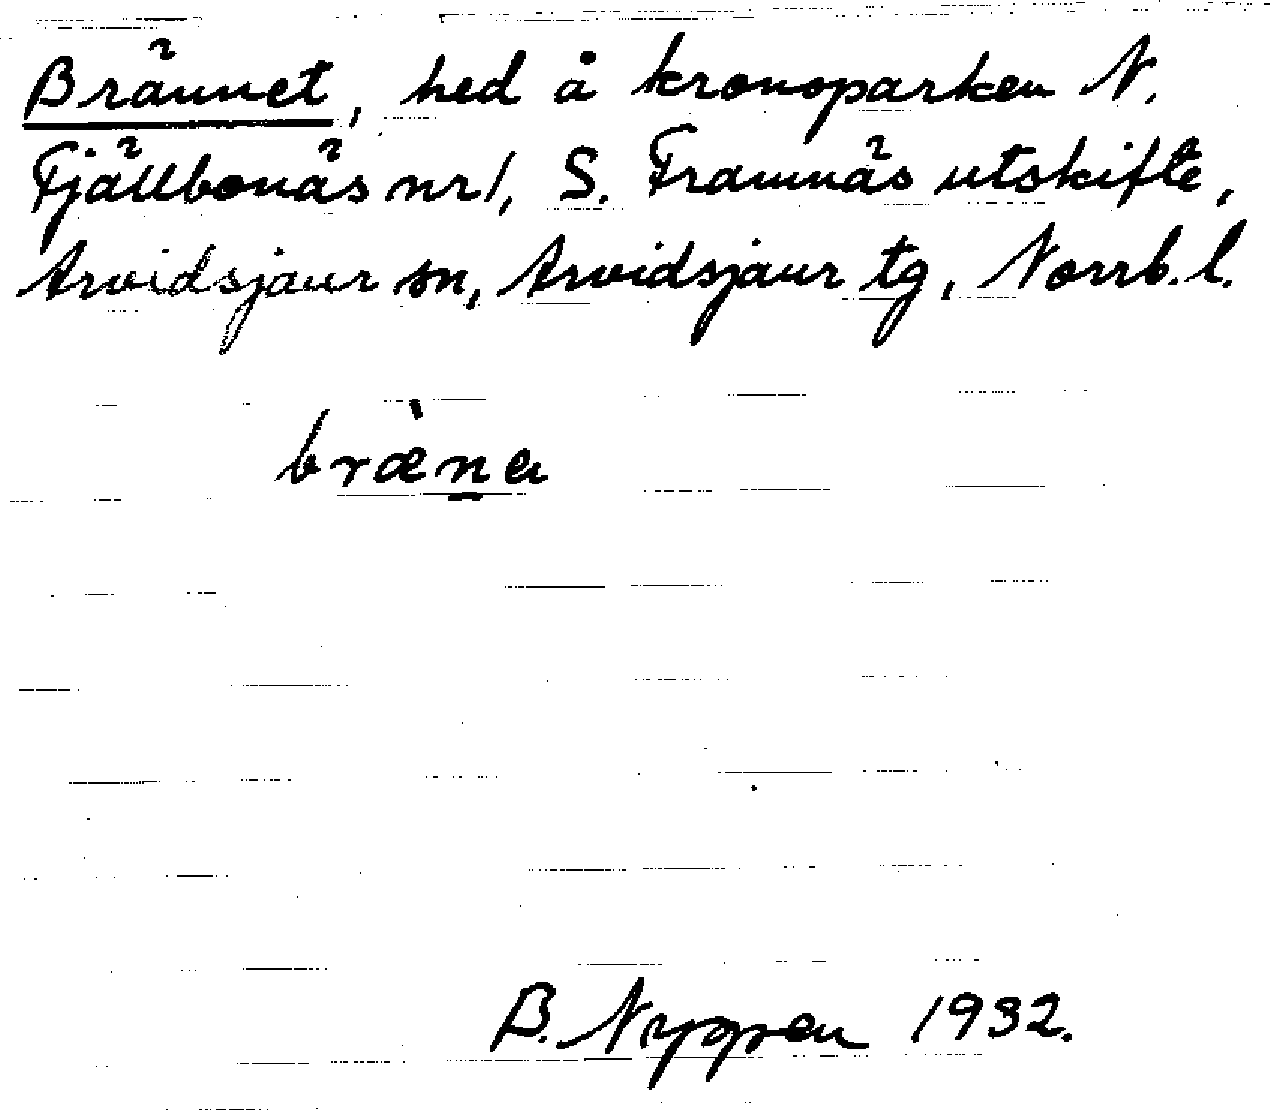 Brännet, hed å kronoparken N.
Fjällbonäs nr 1, S. Framnäs utskifte,
Arvidsjaur sn, Arvidsjaur tg, Norrb. l.
bræ̀n̲a
B. Nygren 1932.